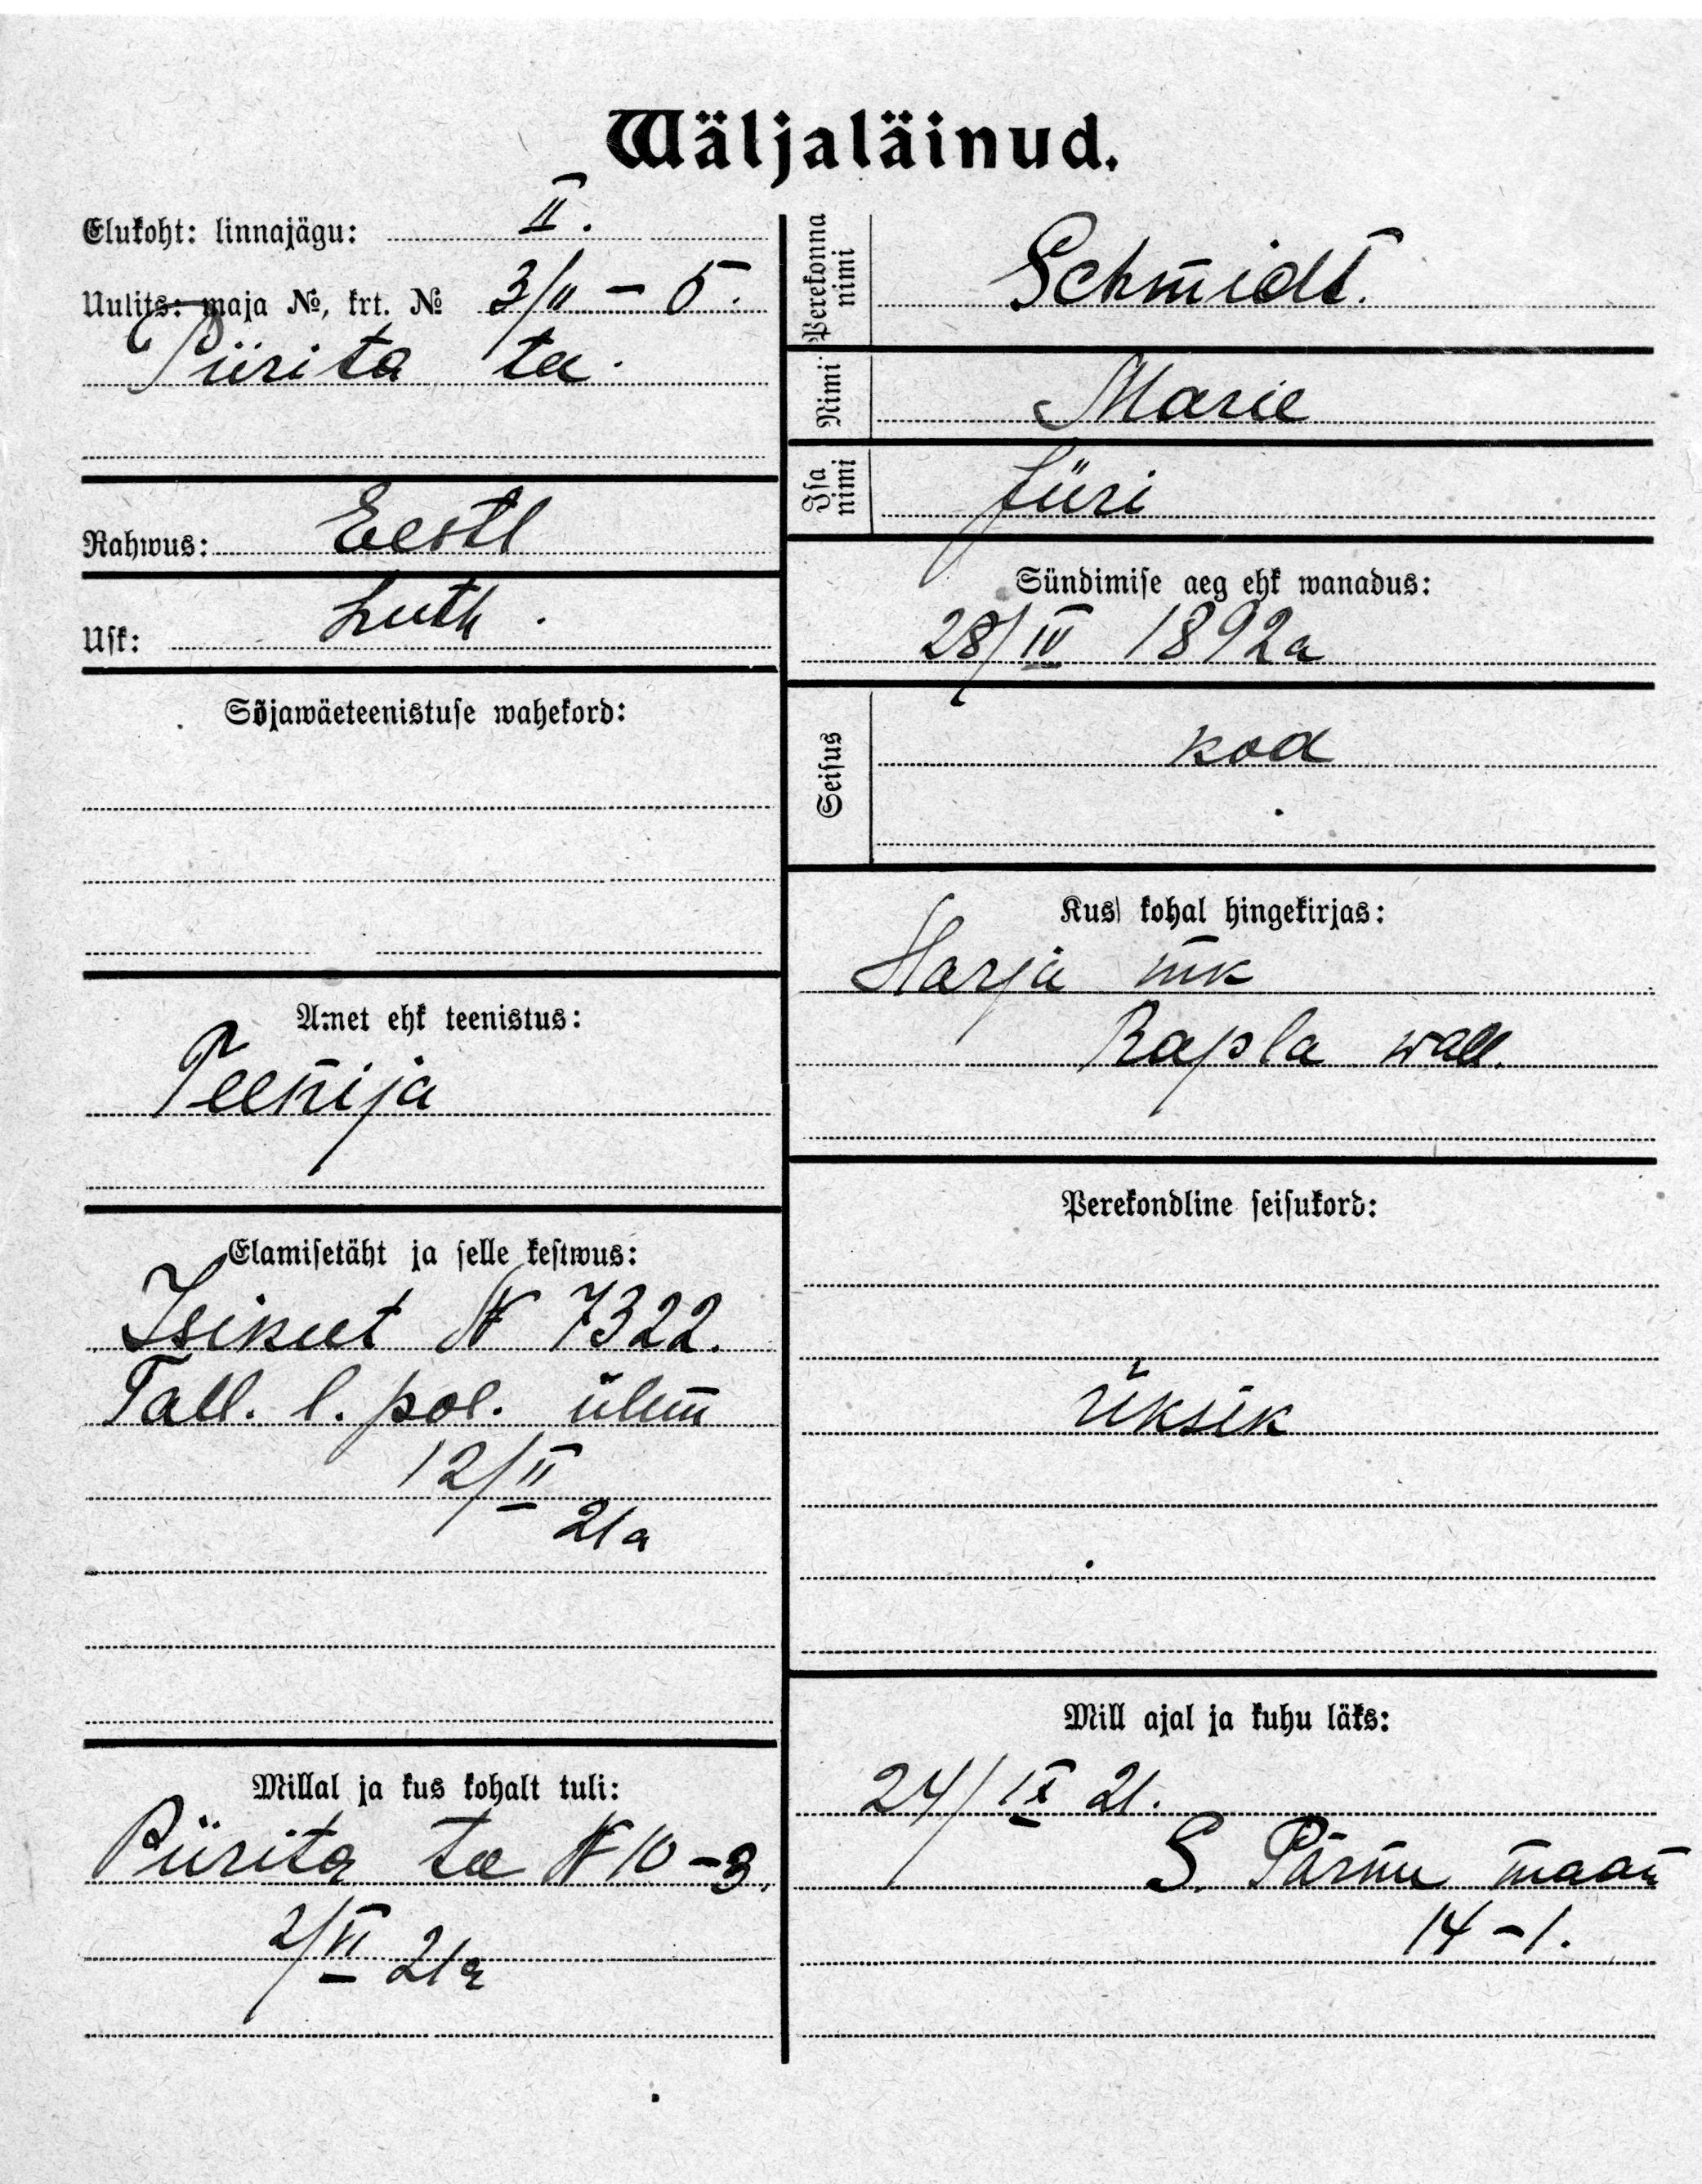 Wäljaläinud.
Elukoht: linnajägu: II.
Uulits: maja №, krt. № 3/11 – 5.
Piirita tee.
Rahwus: Eestl
Usk: Luth.
Sõjawäeteenistuse wahekord:
Amet ehk teenistus:
Teenija
Elamisetäht ja selle kestwus:
Isikut № 7322.
Tall. l. pol. ülem
12/II
21a
Millal ja kus kohalt tuli:
Piirita tee № 10 – 3.
2/VI 21a
Perekonna nimi
Schmidt.
Nimi
Marie
Isa nimi
Jüri
Sündimise aeg ehk wanadus:
28/IV 1892a
Seisus
kod
Kus kohal hingekirjas:
Harju mk
Rapla wall.
Perekondline seisukord:
üksik
Mill ajal ja kuhu läks:
24/IX 21.
S. Pärnu maan
14 – 1.